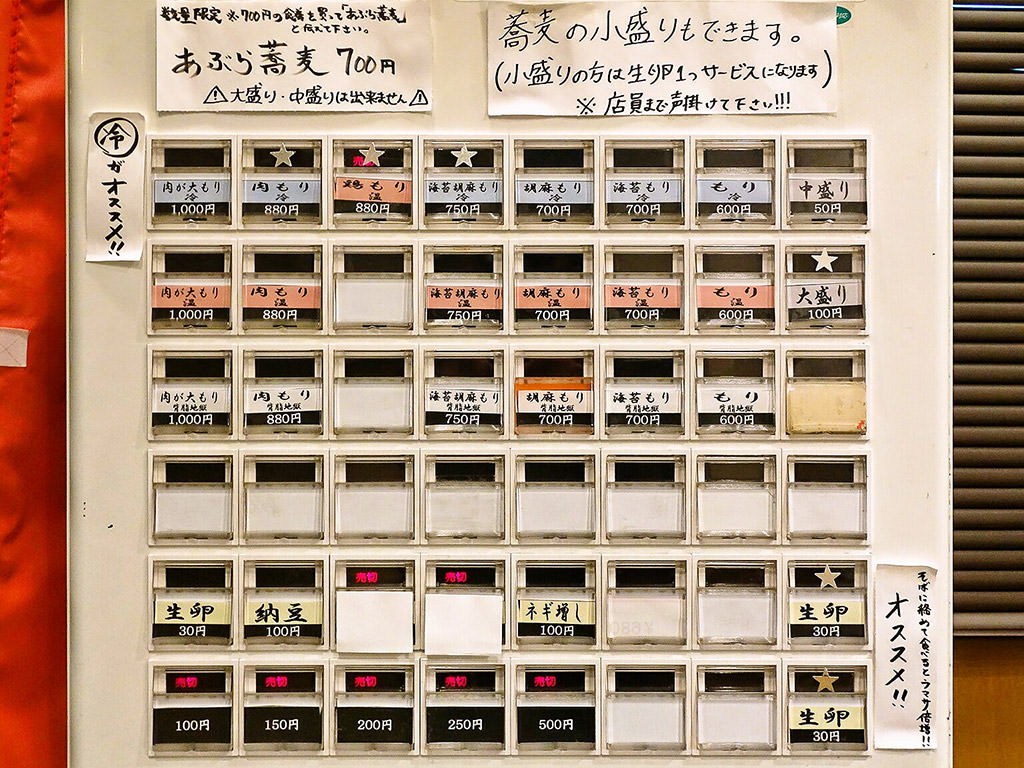 数量限定 ※700円の食券を買って「あぶら蕎麦」
と伝えて下さい。
あぶら蕎麦 700円
⚠大盛り・中盛りは出来ません⚠
蕎麦の小盛りもできます。
(小盛りの方は生卵1つサービスになります)
※ 店員まで声掛けて下さい!!!
冷がオススメ!!
肉が大もり
冷
1,000円
肉もり
冷
880円
売
鶏もり
温
880円
海苔胡麻もり
冷
750円
胡麻もり
冷
700円
海苔もり
冷
700円
もり
冷
600円
中盛り
50円
肉が大もり
温
1,000円
肉もり
温
880円
海苔胡麻もり
温
750円
胡麻もり
温
700円
海苔もり
温
700円
もり
温
600円
大盛り
100円
肉が大もり
背脂地獄
1,000円
肉もり
背脂地獄
880円
海苔胡麻もり
背脂地獄
750円
胡麻もり
背脂地獄
700円
海苔もり
背脂地獄
700円
もり
背脂地獄
600円
生卵
30円
納豆
100円
売切
売切
ネギ増し
100円
生卵
30円
売切
100円
売切
150円
売切
200円
売切
250円
売切
500円
生卵
30円
そばに絡めて食べるとウマサ倍増!!
オススメ!!